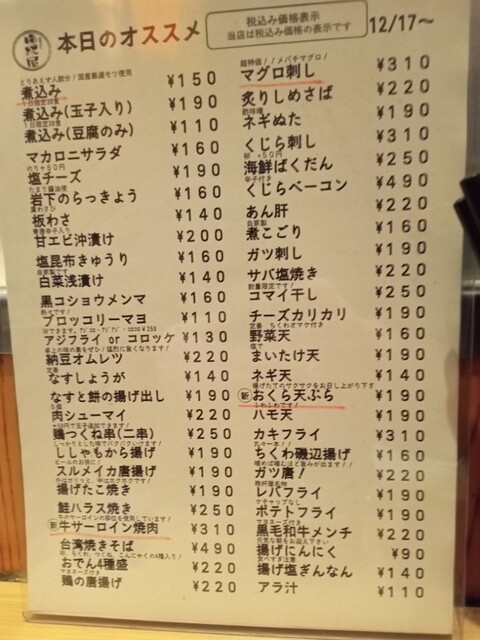 本日のオススメ
税込み価格表示
当店は税込み価格の表示です
12/17～
煮込み ¥150
煮込み(玉子入り) ¥190
煮込み(豆腐のみ) ¥110
マカロニサラダ ¥160
塩チーズ ¥190
岩下のらっきょう ¥160
板わさ ¥140
甘エビ沖漬け ¥200
塩昆布きゅうり ¥160
自家製です
白菜浅漬け ¥140
黒コショウメンマ ¥160
ブロッコリーマヨ ¥110
アジフライ or コロッケ ¥130
納豆オムレツ ¥220
定番
なすしょうが ¥140
なすと餅の揚げ出し ¥190
肉シューマイ ¥220
鶏つくね串(二串) ¥250
ししゃもから揚げ ¥190
スルメイカ唐揚げ ¥190
揚げたこ焼き ¥190
鮭ハラス焼き ¥250
新 牛サーロイン焼肉 ¥310
台湾焼きそば ¥490
おでん4種盛 ¥220
マヨネーズ付き
鶏の唐揚げ ¥220
超特価!!メバチマグロ!
マグロ刺し ¥310
炙りしめさば ¥220
ネギぬた ¥190
くじら刺し ¥310
海鮮ばくだん ¥250
くじらベーコン ¥490
あん肝 ¥220
自家製
煮こごり ¥160
ガツ刺し ¥190
サバ塩焼き ¥220
数量限定です!
コマイ干し ¥250
チーズカリカリ ¥190
野菜天 ¥160
まいたけ天 ¥190
ネギ天 ¥140
揚げたてのサクサクをお召し上がり下さい
新 おくら天ぷら ¥190
ふわふわです!
ハモ天 ¥190
カキフライ ¥310
ちくわ磯辺揚げ ¥160
噛めば噛むほど旨みが出ます!!
ガツ唐! ¥220
レバフライ ¥190
ポテトフライ ¥190
マヨネーズ付き
黒毛和牛メンチ ¥220
揚げにんにく ¥90
食べすぎ注意
揚げ塩ぎんなん ¥140
アラ汁 ¥110